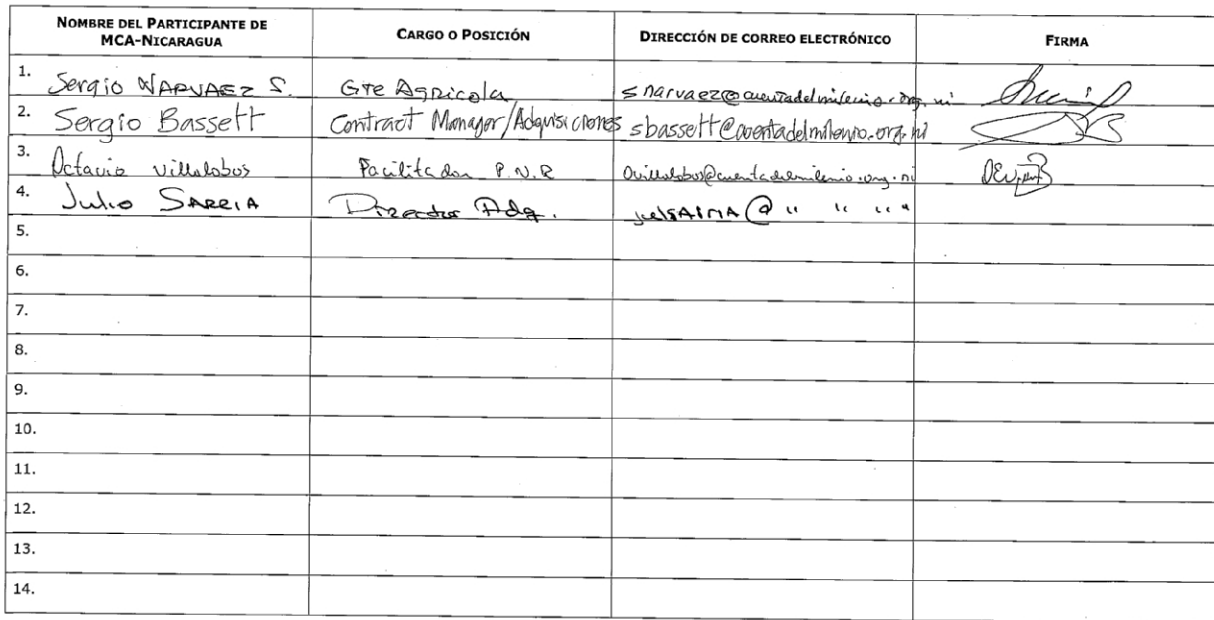 NOMBRE DEL PARTICIPANTE DE MCA-NICARAGUA CARGO O POSICIÓN DIRECCIÓN DE CORREO ELECTRÓNICO FIRMA
1. Sergio NARVAEZ S. Gte Agricola snarvaez@cuentadelmilenio.org.ni
2. Sergio Bassett Contract Manager/Adquisiciones sbassett@cuentadelmilenio.org.ni
3. Octavio Villalobos Facilitador P.N.R Ovillalobos@cuentadelmilenio.org.ni
4. Julio SARRIA Director Adq. @ " " " "
5.
6.
7.
8.
9.
10.
11.
12.
13.
14.